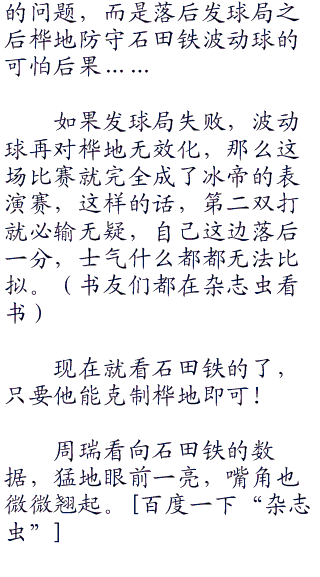 的问题，而是落后发球局之
后桦地防守石田铁波动球的
可怕后果……
如果发球局失败，波动
球再对桦地无效化，那么这
场比赛就完全成了冰帝的表
演赛，这样的话，第二双打
就必输无疑，自己这边落后
一分，士气什么都都无法比
拟。（书友们都在杂志虫看
书）
现在就看石田铁的了，
只要他能克制桦地即可！
周瑞看向石田铁的数
据，猛地眼前一亮，嘴角也
微微翘起。[百度一下“杂志
虫”]